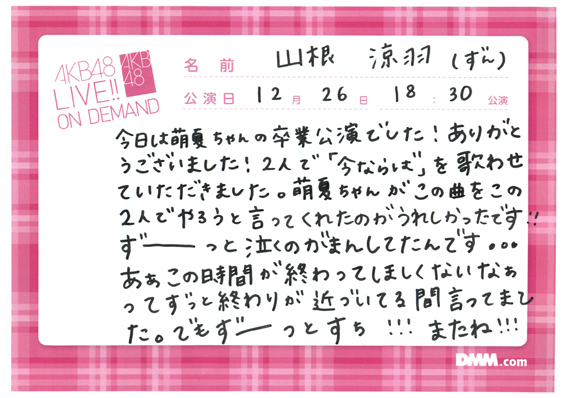 AKB48
LIVE!!
ON DEMAND
AKB
48
名前 山根 涼羽 (ずん)
公演日 12月 26日 18:30 公演
今日は萌夏ちゃんの卒業公演でした!ありがと
うございました!2人で「今ならば」を歌わせ
ていただきました。萌夏ちゃんがこの曲をこの
2人でやろうと言ってくれたのがうれしかったです!!
ずーーっと泣くのがまんしてたんです...
あぁこの時間が終わってほしくないなぁ
ってずっと終わりが近づいてる間言ってまし
た。でもずーーっとすち !!! またね!!!
DMM.com